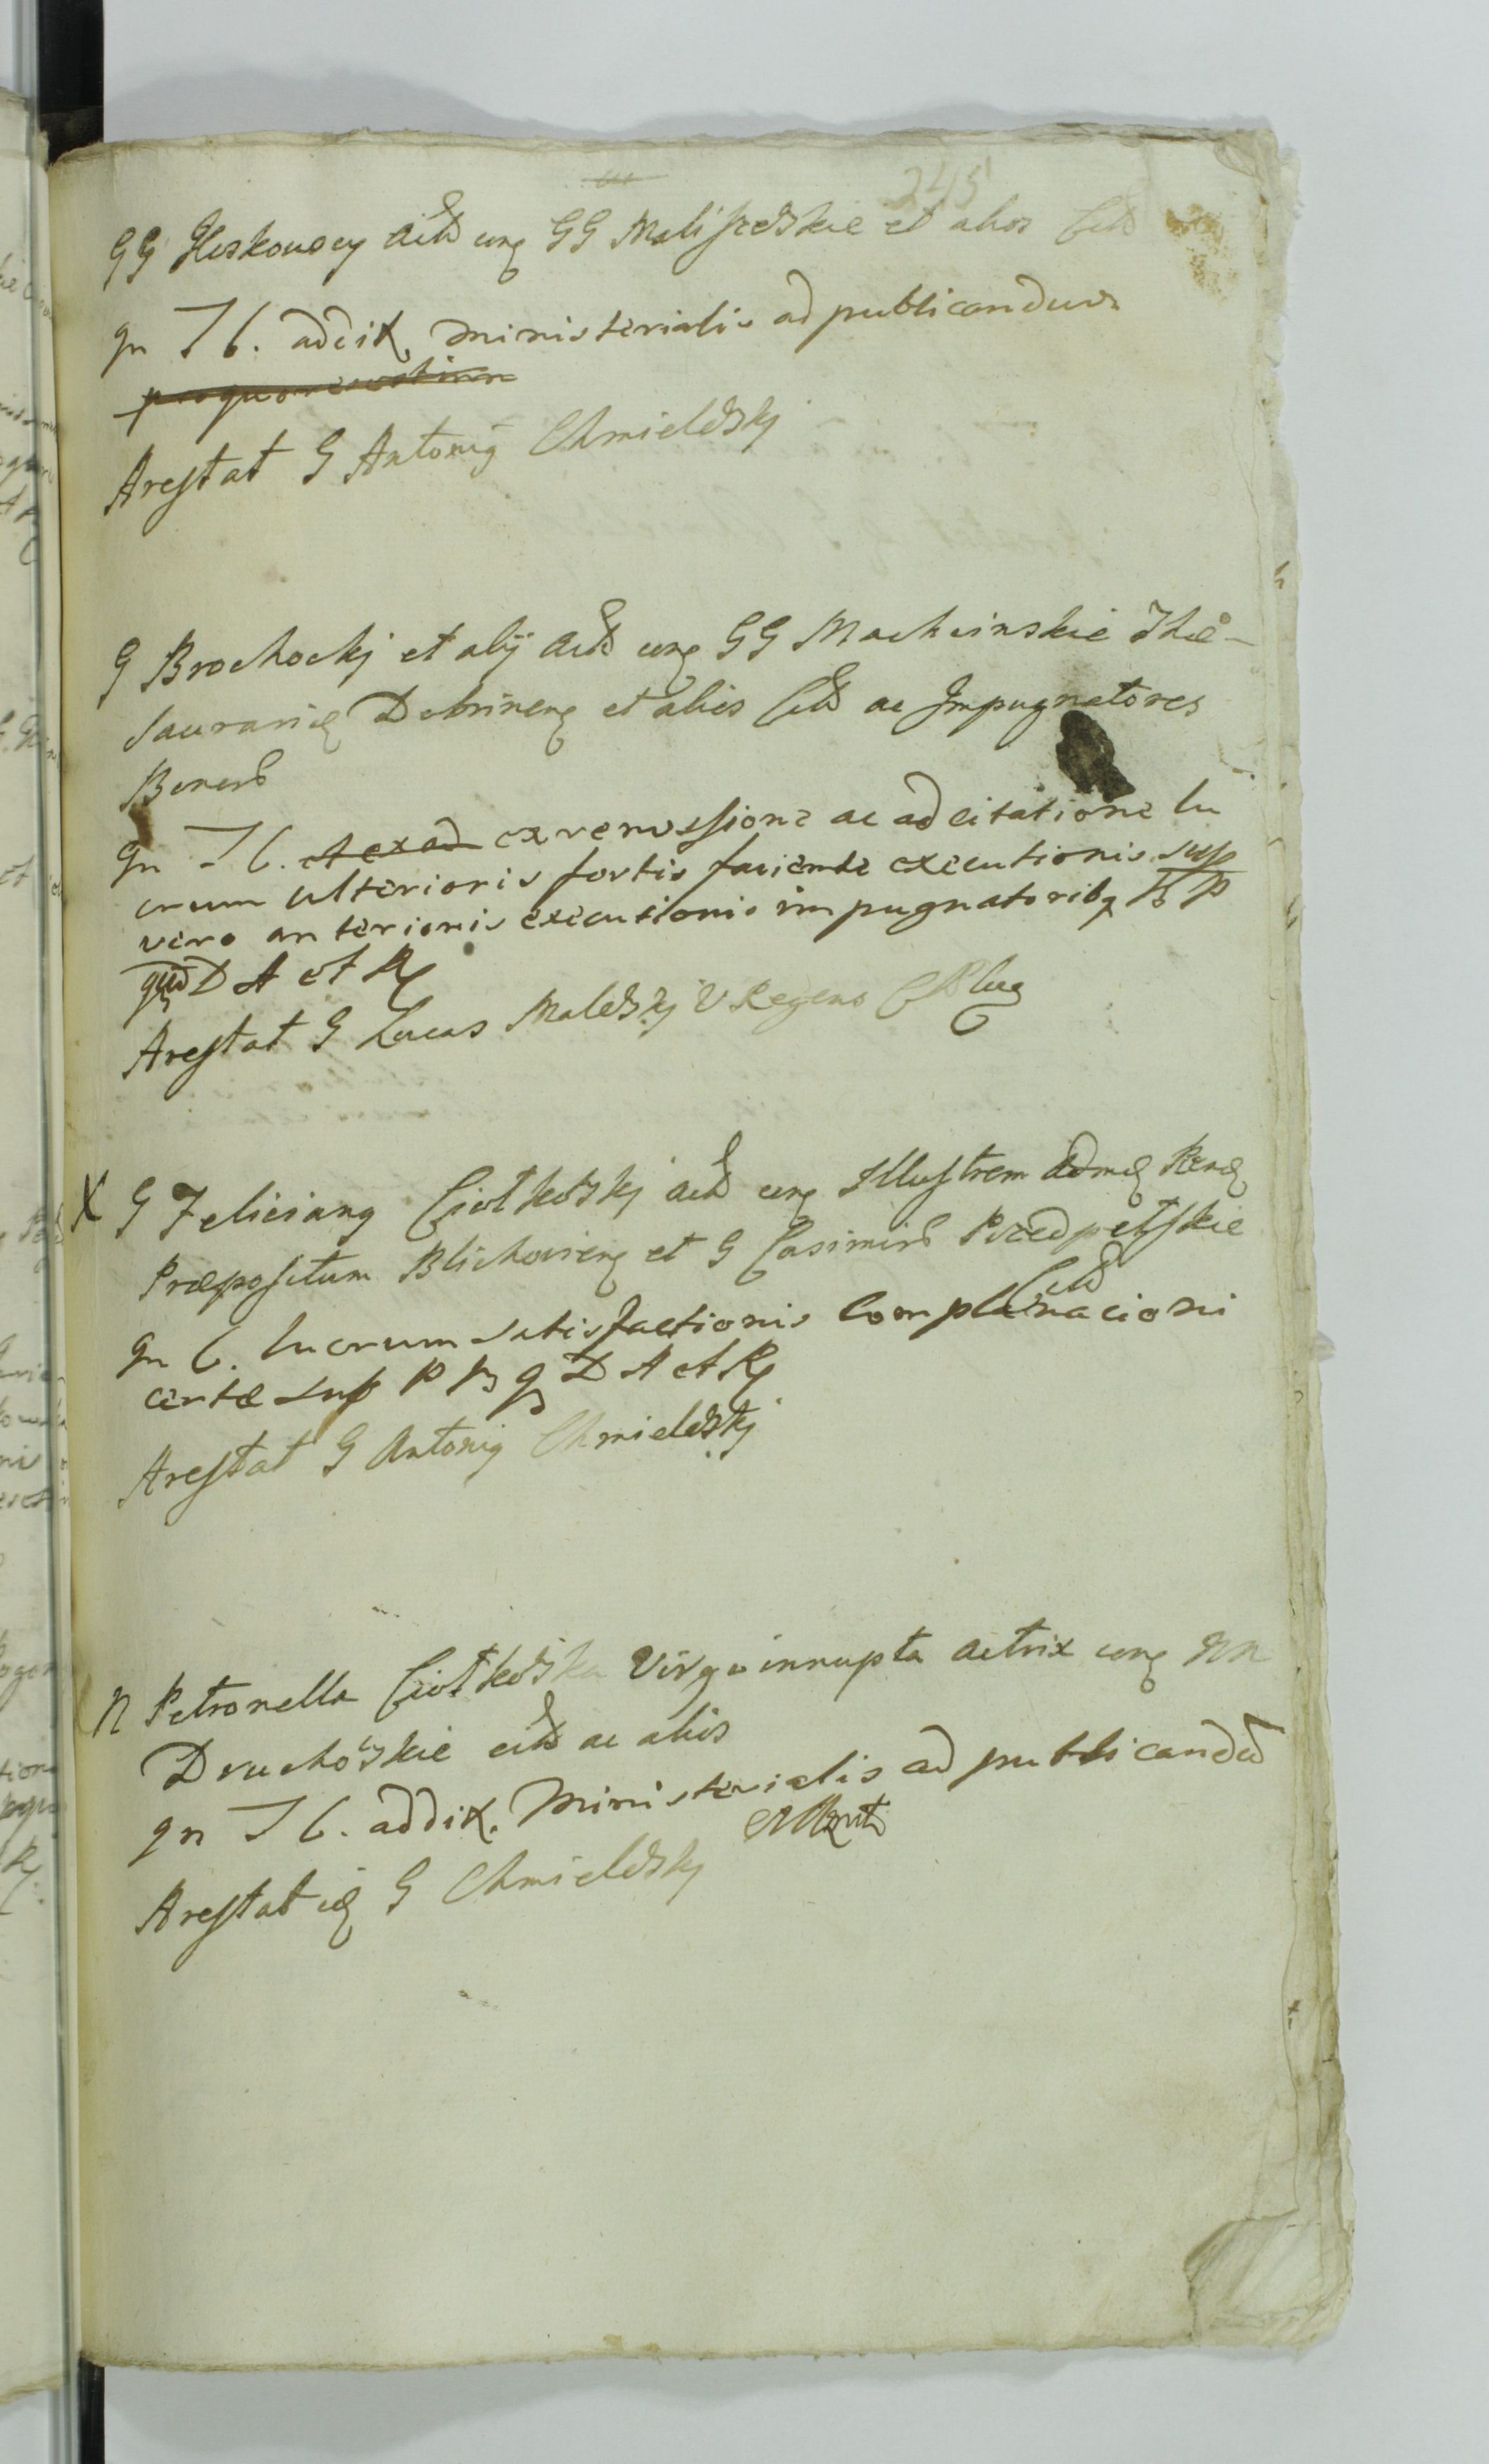 245
GG Gleskowscy Actt con GG Maliszewskie et alios Citt
qn I C. addit, ministerialis ad publicandum
Arestat G Antoni9 Chmielewskj
G Brochockj et alij Actt con GG Machcinskie The-
saurarie Dobrinen et alios Citt ac Impugnatores
Bonor
qn I C. et exad ex remissione ac adcitatione lu
crum ulterioris fortis faciendæ executionis sup
vero anterioris executionis impugnatoribq B P
D A et R
Arestat G Lucas Malewskj V Regens C Plug
X G Felician9 Ciołkowskj Actt con Illustrem Adm Rend
Præpositum Blichovien et G Casimir Przedpełskie
Citt
qn C. lucrum satisfactionis complanacioni
certæ sup P B q D A et R
Arestat G Antoni9 Chmielewskj
N Petronella Ciołkowska Virgo innupta Actrix con NN
Druchowskie citt ac alios
qn I C. addit. Ministerialis ad publicandū
Arestat id G Chmielewskj